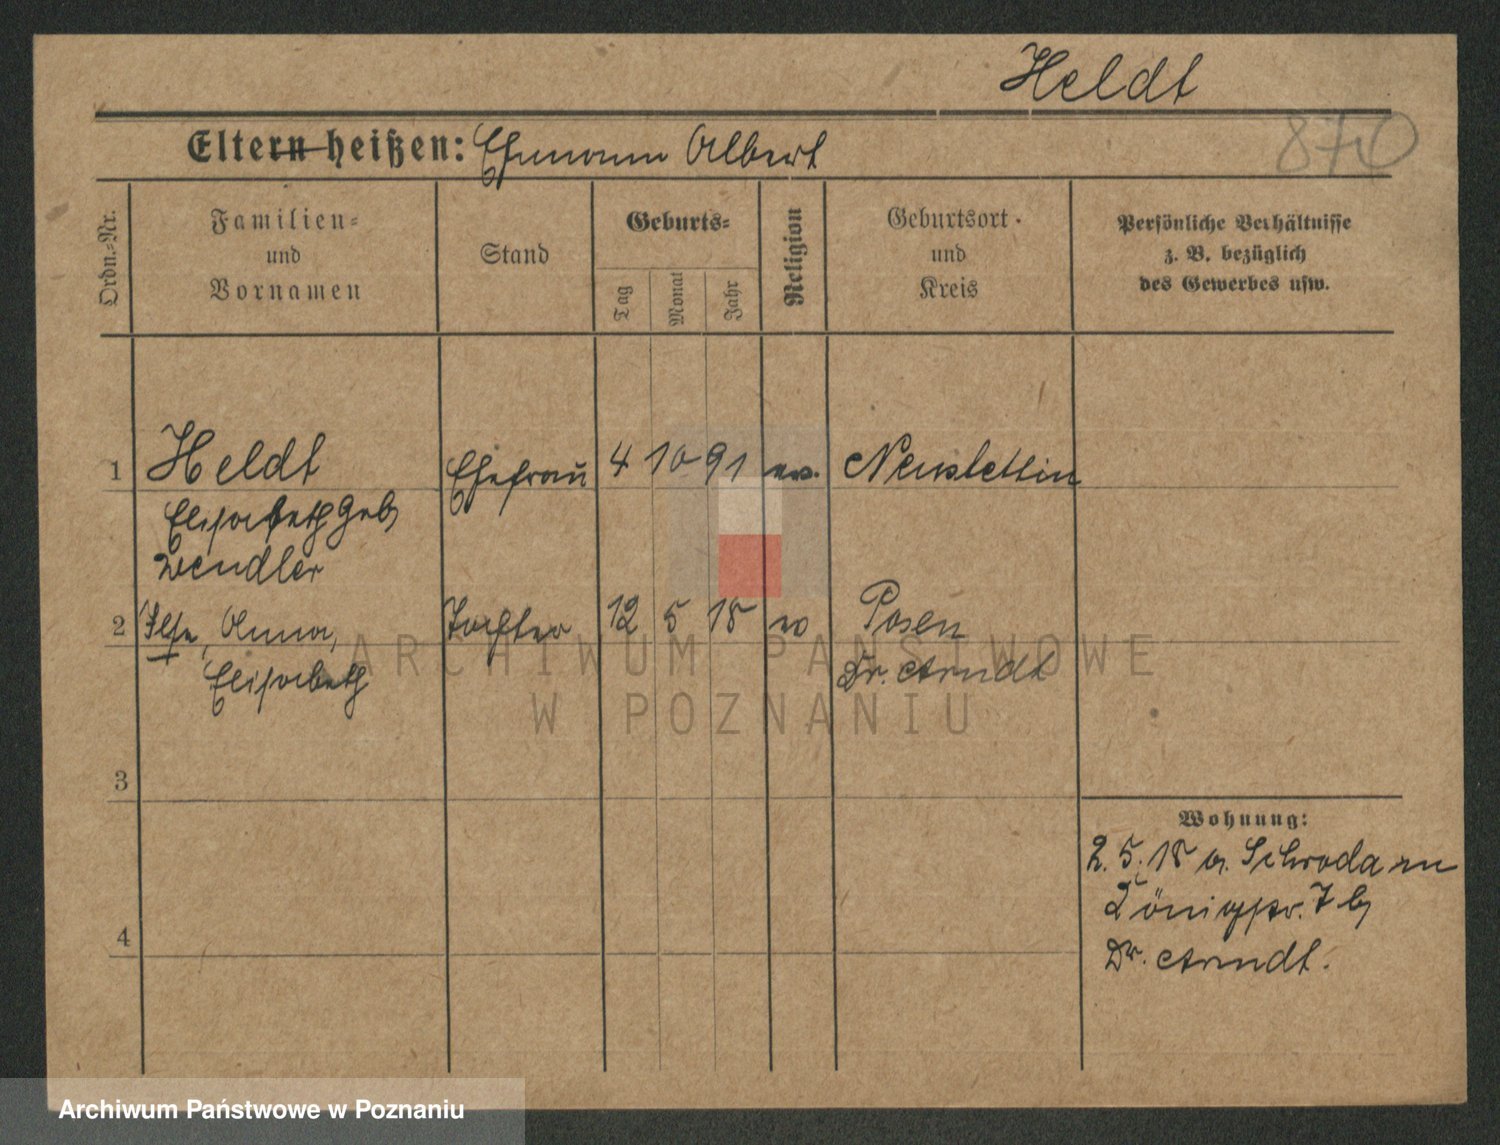 Heldt
870
Eltern heißen: Ehemann Albert
Ordn.-Nr.
Familien-
und
Vornamen
Stand
Geburts-
Tag
Monat
Jahr
Religion
Geburtsort
und
Kreis
Persönliche Verhältnisse
z. B. bezüglich
des Gewerbes usw.
1 Heldt Ehefrau 4 10 91 ev. Neustettin
Elisabeth geb
Wendler
2 Ilse, Anna, Tochter 12 5 18 ev Posen
Elisabeth Dr. Arndt
3
4
Wohnung:
2. 5. 18 a. Schroda
Königstr. 7 b
Dr. Arndt.
ARCHIWUM PAŃSTWOWE
W POZNANIU
Archiwum Państwowe w Poznaniu